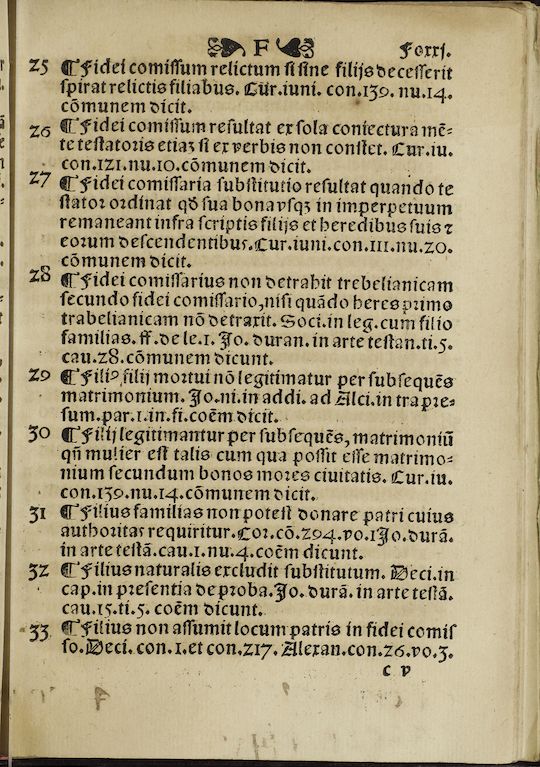 F Foxxj.
25 ¶ Fidei comissum relictum si sine filijs decesserit
spirat relictis filiabus. Cur.iuni. con.139. nu.14.
cõmunem dicit.
26 ¶ Fidei comissum resultat ex sola coniectura mẽ-
te testatoris etiaȝ si ex verbis non constet. Cur.iu.
con.121.nu.10.cõmunem dicit.
27 ¶ Fidei comissaria substitutio resultat quando te
stator ordinat qđ sua bonavsqȝ in imperpetuum
remaneant infra scriptis filijs et heredibus suis ⁊
eorum descendentibus.Cur.iuni.con.111.nu.20.
cõmunem dicit.
28 ¶ Fidei comissarius non detrahit trebelianicam
secundo fidei comissario,nisi quãdo heres primo
trabelianicam nõ detraxit. Soci.in leg.cum filio
familias.ff.de le.1. Jo.duran.in arte testan.ti.5.
cau.28.cõmunem dicunt.
29 ¶ Filiꝰ filij mortui nõ legitimatur per subsequẽs
matrimonium. Jo.ni.in addi. ad Alci.in tra pre-
sum.par.1.in.fi.coẽm dicit.
30 ¶ Filij legitimantur per subsequẽs, matrimoniũ
qñ mulier est talis cum qua possit esse matrimo-
nium secundum bonos mores ciuitatis. Cur.iu.
con.139.nu.14.cõmunem dicit.
31 ¶ Filius familias non potest donare patri cuius
authoritas requiritur.Cor.cõ.294.vo.1Jo.durã.
in arte testã.cau.1.nu.4.coẽm dicunt.
32 ¶ Filius naturalis excludit substitutum. Deci.in
cap.in presentia de proba.Jo. durã. in arte testã.
cau.15.ti.5. coẽm dicunt.
33 ¶ Filius non assumit locum patris in fidei comis
so.Deci. con.1.et con.217. Alexan.con.26.vo.3.
c v